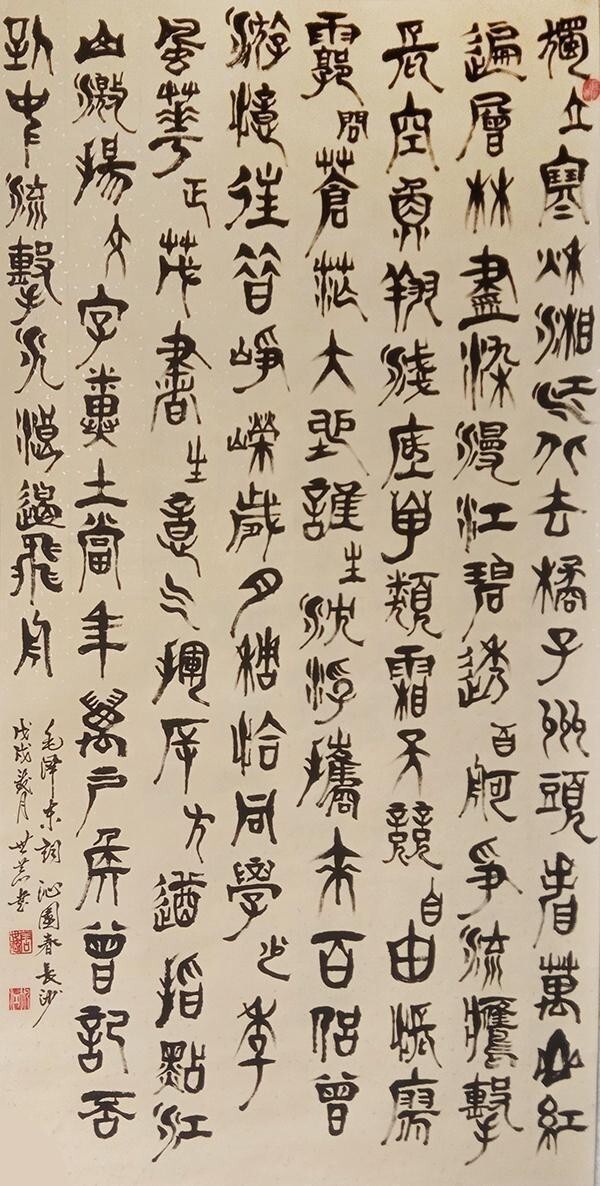 獨立寒秋湘江北去橘子洲頭看萬山紅
遍層林盡染漫江碧透百舸爭流鷹擊
長空魚翔淺底萬類霜天競自由悵寥
廓問蒼茫大地誰主沈浮攜來百侶曾
游憶往昔崢嶸歲月稠恰同學少年
風華正茂書生意氣揮斥方遒指點江
山激揚文字糞土當年萬戶侯曾記否
到中流擊水浪遏飛舟
毛泽东詞 沁園春長沙
戊戌 月 世 書